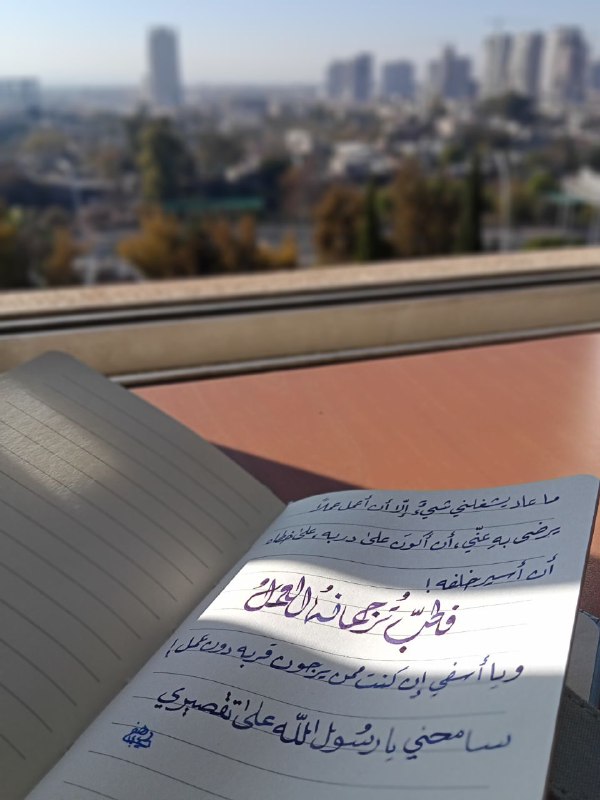 ما عاد يشغلني شيءٌ إلّا أن أعمل عملاً
يرضى به عنّي، أن أكون على دربه، على خطاه
أن أسير خلفه!
فالحبّ تُرجمانهُ العملُ
ويا أسفي إن كنت ممن يرجون قربه دون عمل!
سامحني يا رسُول اللّه على تقصيري